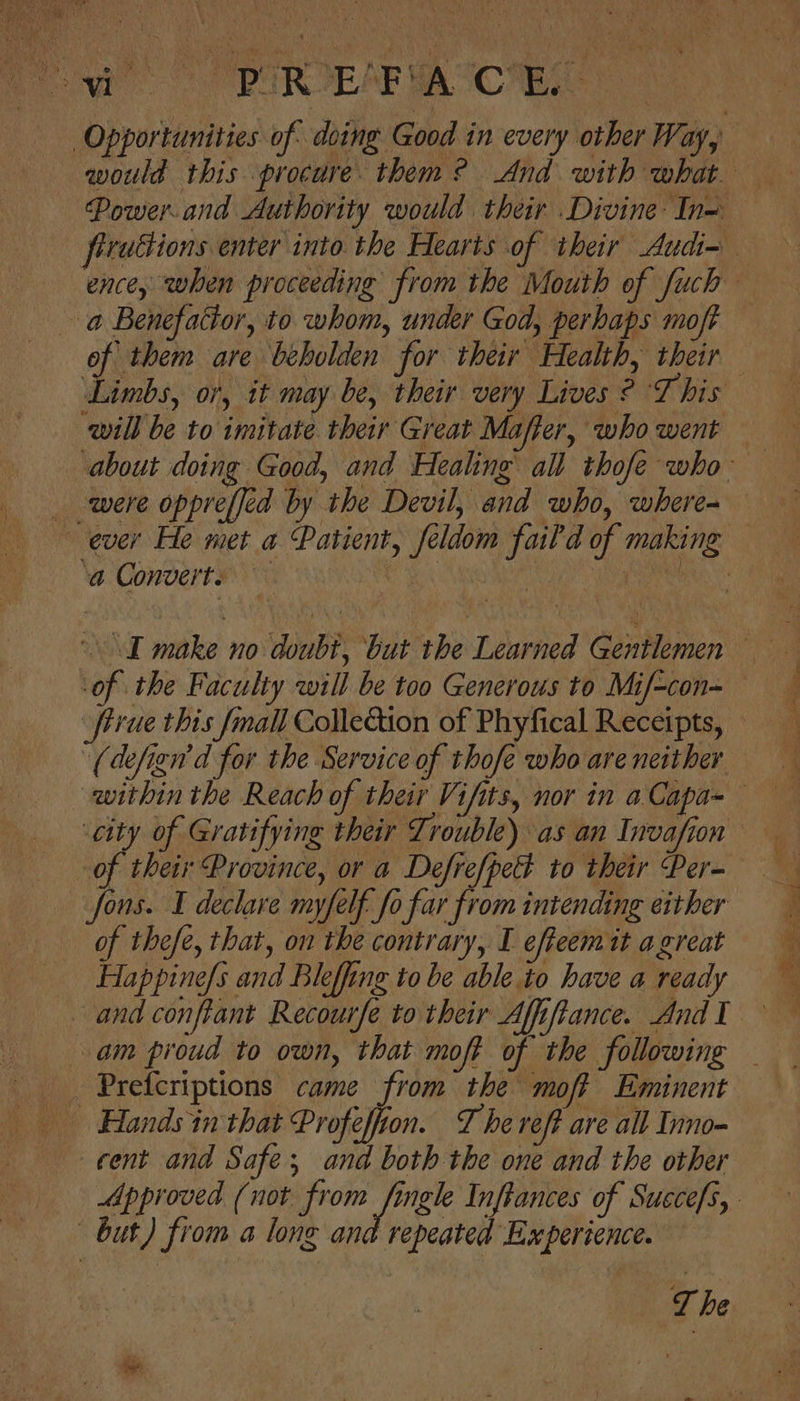 vi PREFACE.
Opportunities of doing Good in every other Way,
would this procure them? And with what
Power and Authority would their Divine In-
ſtructions enter into the Hearts of their Audi-
ence, when proceeding from the Mouth of ſuch
a Benefactor, to whom, under God, perhaps moſt
of them are beholden for their Health, their
Limbs, or, it may be, their very Lives? This
will be to imitate their Great Maſter, who went
about doing Good, and Healing all thoſe who
were oppreſſed by the Devil, and who, where-
ever He met a Patient, ſeldom fail'd of making
a Convert.
I make no doubt, but the Learned Gentlemen
of the Faculty will be too Generous to Miſ-con-
ſtrue this ſmall Collection of Phyſical Receipts,
(deſign'd for the Service of thoſe who are neither
within the Reach of their Viſits, nor in a Capa-
city of Gratifying their Trouble) as an Invaſion
of their Province, or a Deſreſpect to their Per-
ſons. I declare myſelf ſo far from intending either
of theſe, that, on the contrary, I eſteem it a great
Happineſs and Bleſſing to be able to have a ready
and conſtant Recourſe to their Aſſiſtance. And I
am proud to own, that moſt of the following
Preſcriptions came from the moſt Eminent
Hands in that Profeſſion. The reſt are all Inno-
cent and Safe; and both the one and the other
Approved (not from ſingle Inſtances of Succeſs,
but) from a long and repeated Experience.
The